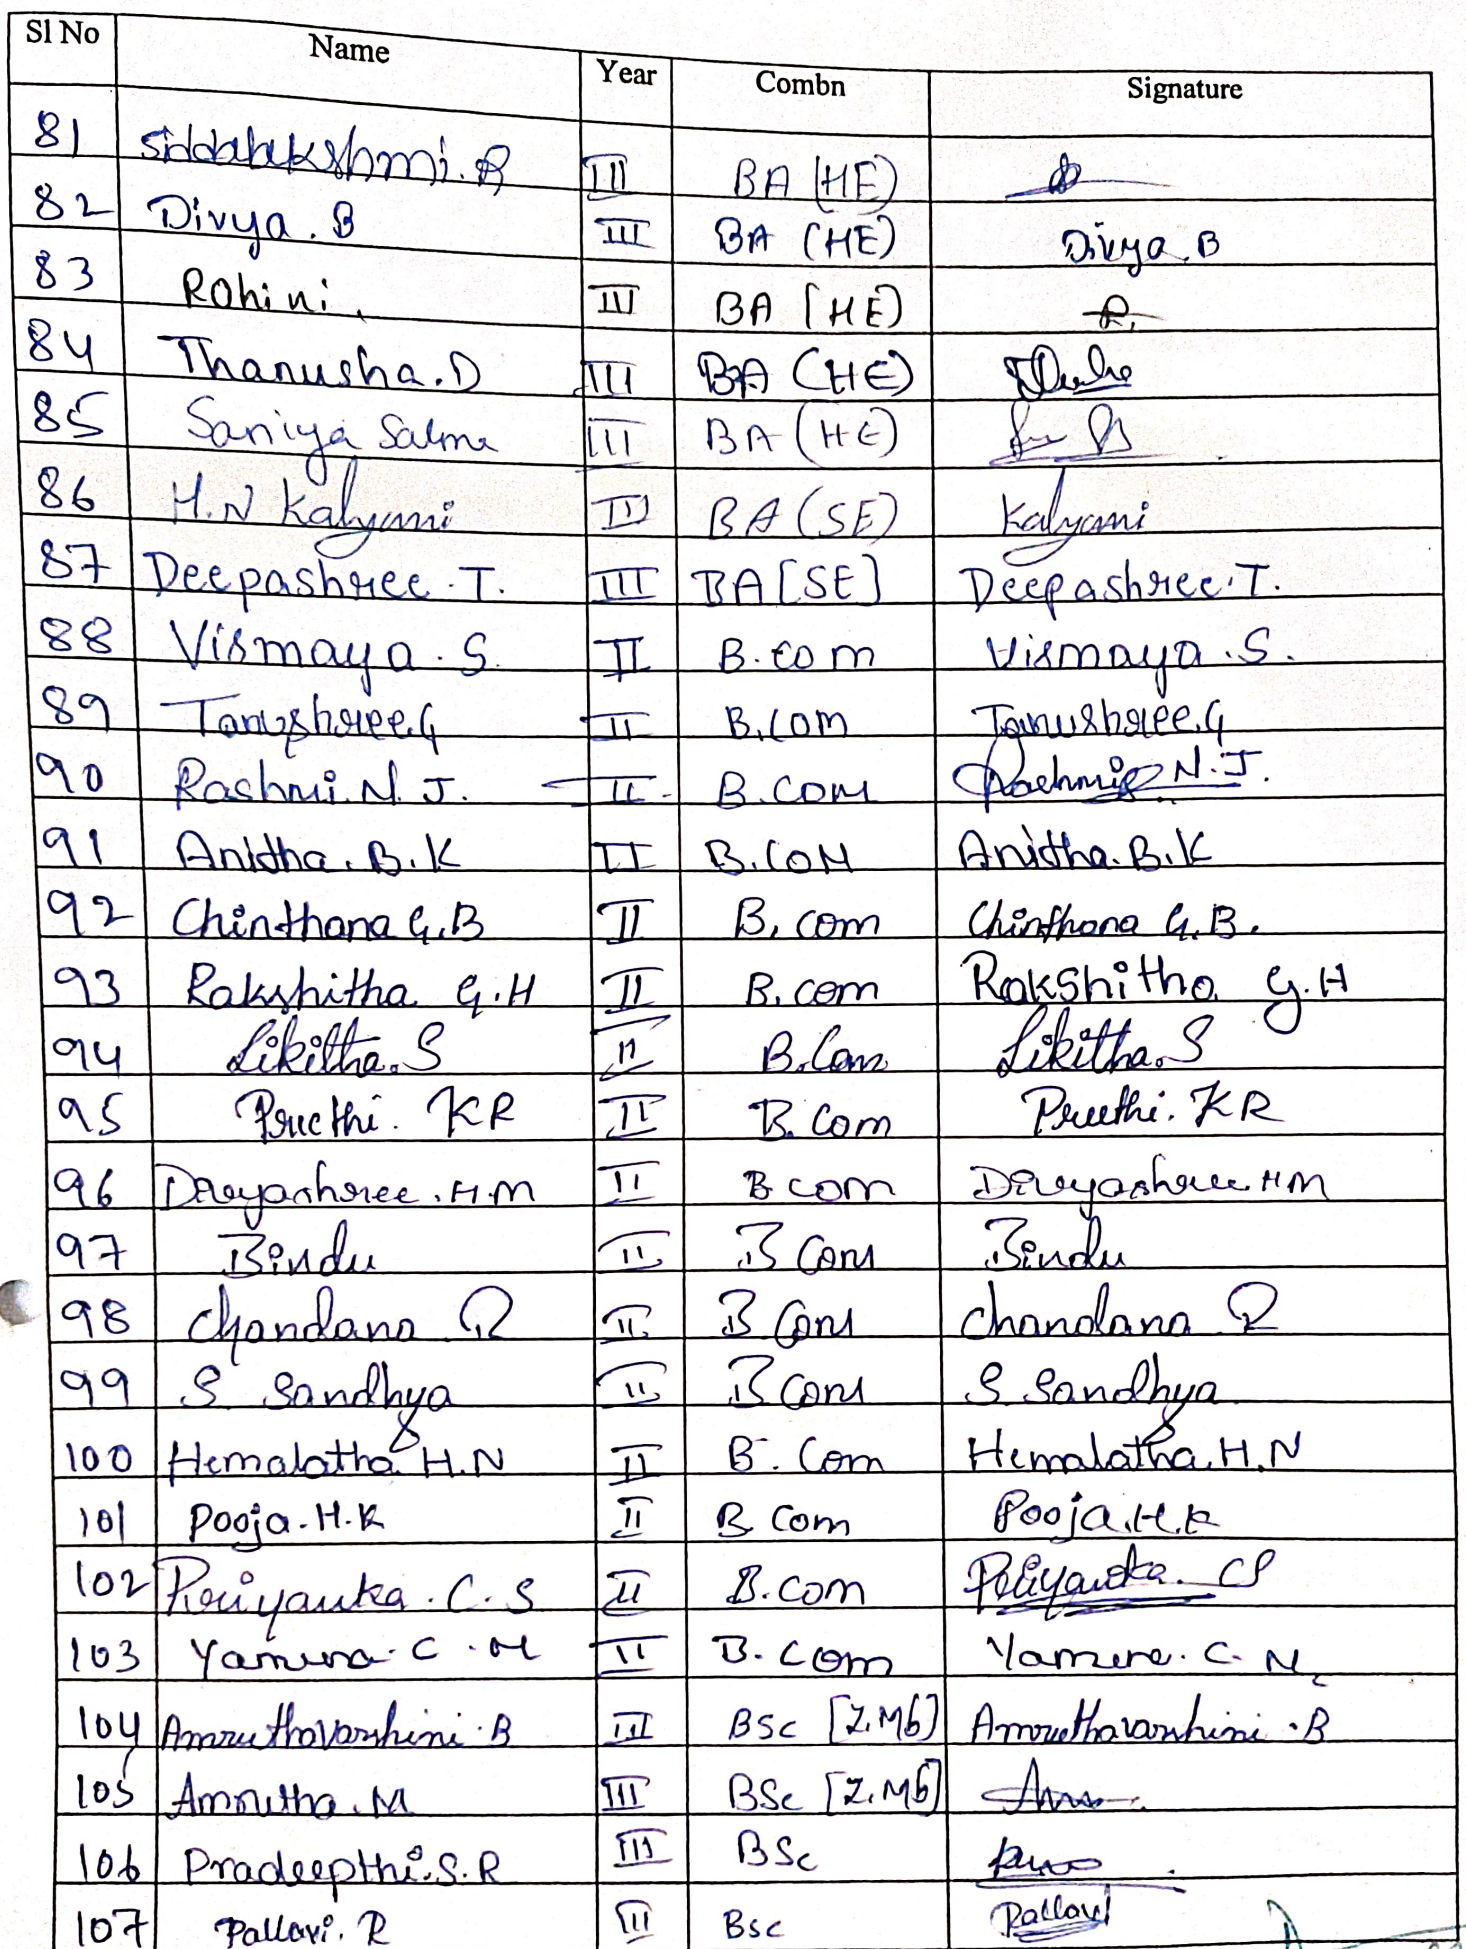 Sl No Name Year Combn Signature
81 Siddalakshmi. R III BA (HE)
82 Divya. B III BA (HE) Divya. B
83 Rohini. III BA [HE) R.
84 Thanusha. D III BA (HE)
85 Saniya Salma III BA (HE)
86 H.N Kalyani III BA (SE) Kalyani
87 Deepashree. T. III BA [SE] Deepashree. T.
88 Vismaya. S. II B.com Vismaya. S.
89 Tanushree.G II B.com Tanushree.G
90 Rashmi. N. J. II B.com Rashmi N.J.
91 Anitha. B. K II B.COM Anitha. B.K
92 Chinthana G.B II B. com Chinthana G.B.
93 Rakshitha G.H II B. com Rakshitha G.H
94 Likitha. S II B.Com Likitha. S
95 Preethi. KR II B. Com Preethi. KR
96 Divyashree. H.M II B com Divyashree HM
97 Bindu II B Com Bindu
98 Chandana R II B Com Chandana R
99 S Sandhya II B Com S Sandhya
100 Hemalatha. H.N II B. Com Hemalatha. H.N
101 Pooja. H.K II B com Pooja.H.K
102 Priyanka. C. S II B.com Priyanka. CS
103 Yamuna. C. N II B. Com Yamuna. C. N.
104 Amruthavarshini. B III BSc [Z.Mb] Amruthavarshini. B
105 Amrutha. M III BSc [Z.Mb]
106 Pradeepthi. S. R III BSc
107 Pallavi. R III Bsc Pallavi